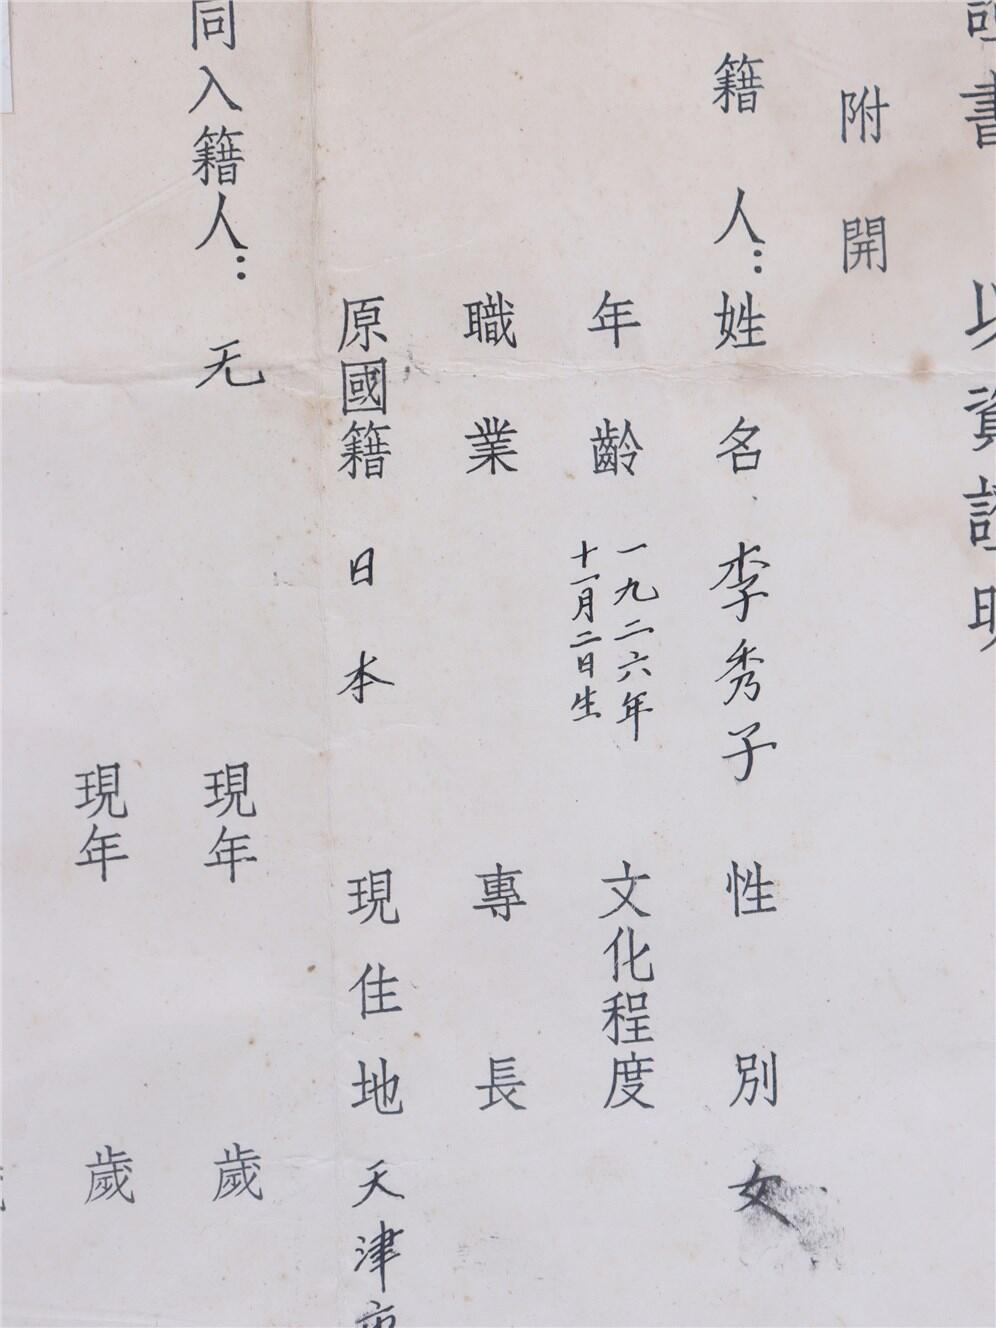 證書 以資證明
附開
籍人：姓名 李秀子 性別 女
年齡 一九二六年
十一月二日生 文化程度
職業 專長
原國籍 日本 現住地 天津市
同入籍人：无 現年 歲
現年 歲